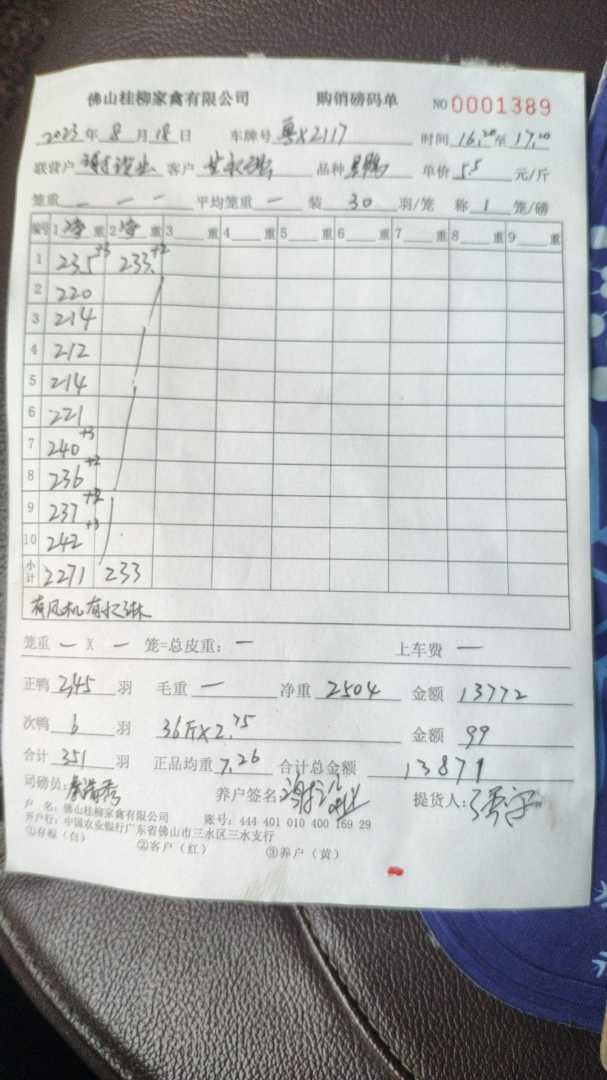 佛山桂柳家禽有限公司 购销磅码单 NO 0001389
2023年 8月 18日 车牌号 粤X2117 时间 16:20至 17:00
联营户 客户 品种 单价 5.5 元/斤
笼重 — — — 平均笼重 — 装 30 羽/笼 称 1 笼/磅
编号 1 净 重 2 净 重 3 重 4 重 5 重 6 重 7 重 8 重 9 重
1 235 +3 233 +2
2 220
3 214
4 212
5 214
6 221
7 240 +3
8 236 +2
9 237 +2
10 242 +3
小计 2271 233
有风机有水淋
笼重 — X — 笼=总皮重: — 上车费 —
正鸭 345 羽 毛重 — 净重 2504 金额 13772
次鸭 6 羽 36斤X2.75 金额 99
合计 351 羽 正品均重 7.26 合计总金额 13871
司磅员: 养户签名 提货人:
户 名: 佛山桂柳家禽有限公司 账号: 444 401 010 400 169 29
开户行: 中国农业银行广东省佛山市三水区三水支行
①存根(白) ②客户(红) ③养户(黄)